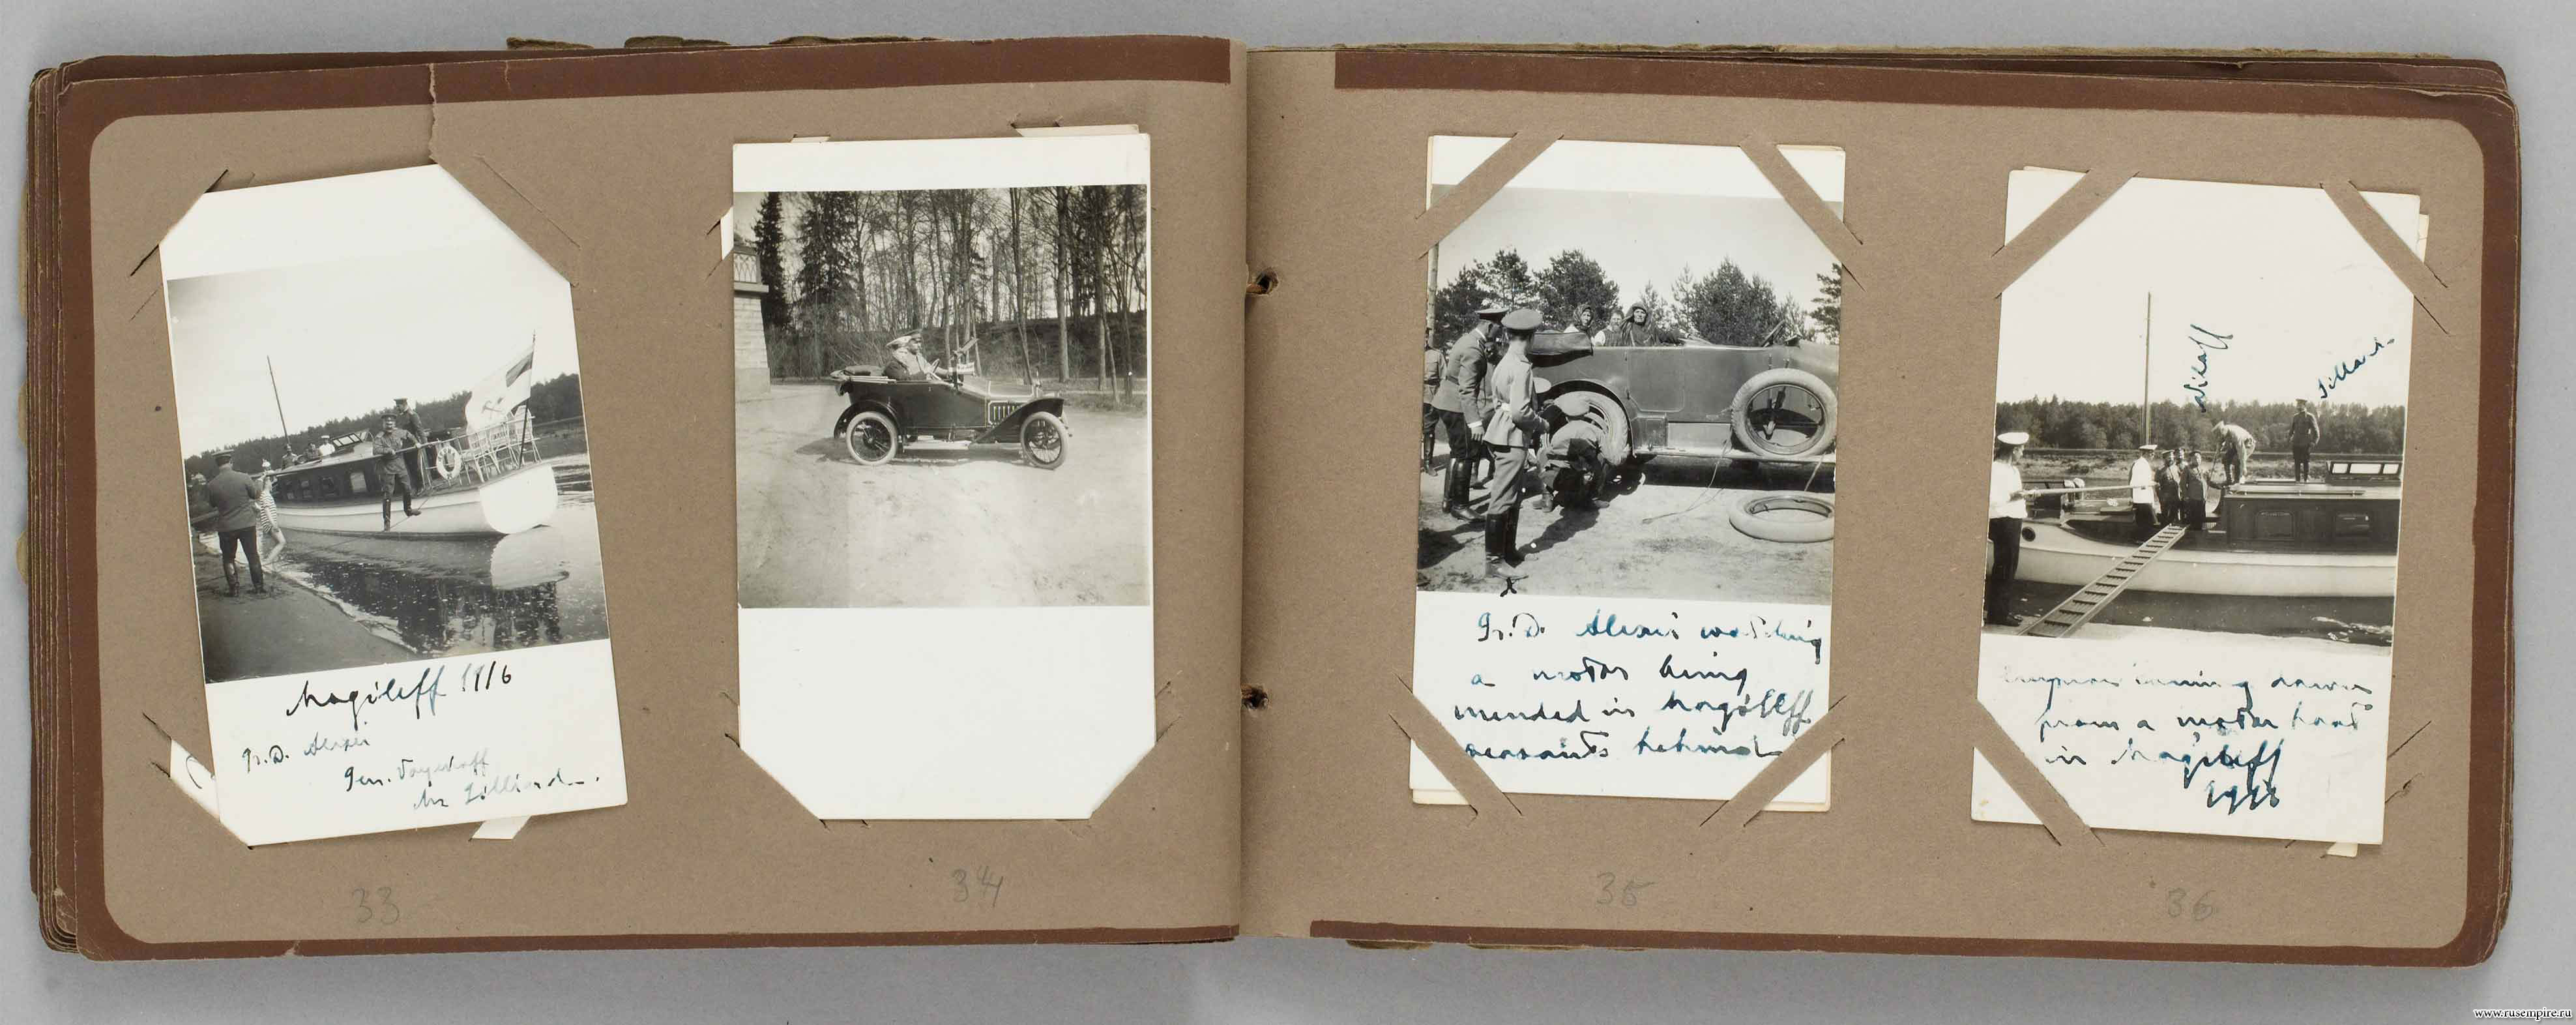 Mogileff 1916
Gr. D. Alexei
Gen. Voyeikoff
Mr Gilliard.
33
34
Gr. D. Alexei watching
a motor being
mended in Mogileff
peasants behind
35
Gilliard
Emperor coming down
from a motor boat
in Mogileff
1916
36
www.rusempire.ru